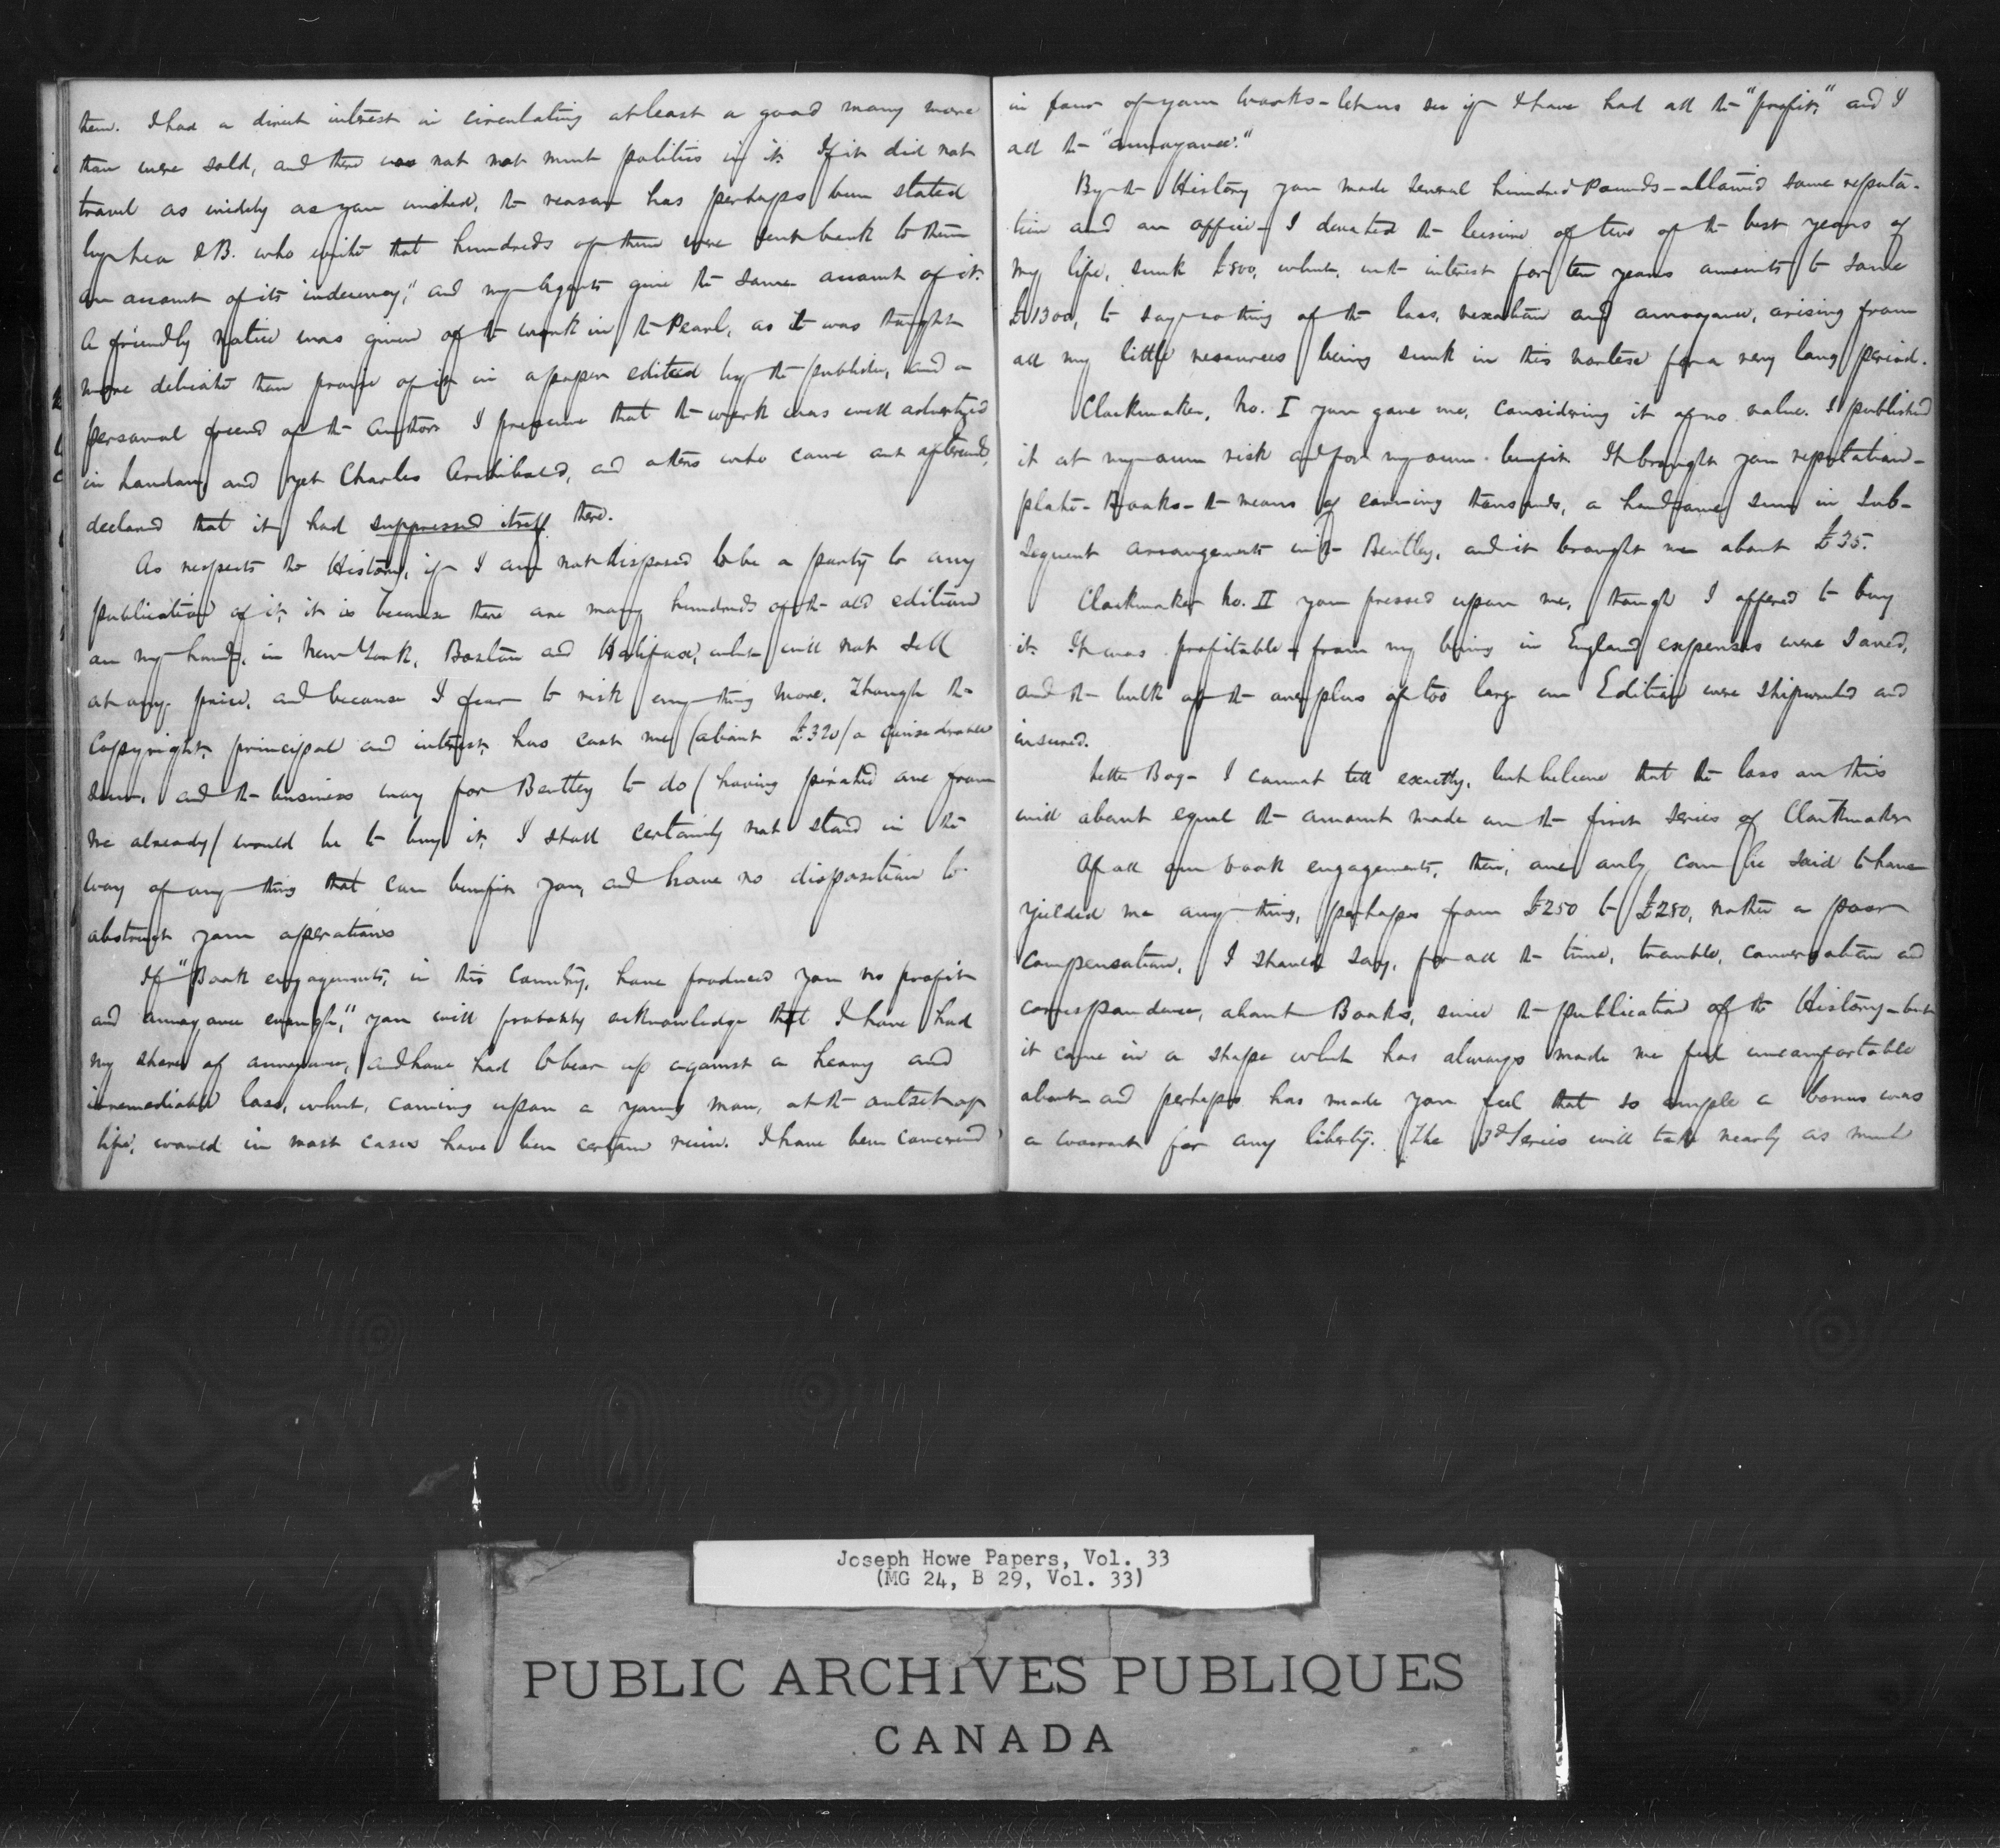 them. I had a direct interest in circulating at least a good many more
than were sold, and there was not not much politics in it. If it did not
travel as widely as you wished, the reason has perhaps been stated
by Lea & B. who write that hundreds of them were sent back to them
on account of its "indecency," and my Agents give the same account of it.
A friendly notice was given of the work in the Pearl, as it was thought
more delicate than praise of it in a paper edited by the publisher, and a
personal friend of the Author. I presume that the work was well advertized
in London, and yet Charles Archibald, and others who came out afterwards,
declared that it had suppressed itself there.
As respects the History, if I am not disposed to be a party to any
publication of it, it is because there are many hundreds of the old edition
on my hands, in New York, Boston and Halifax, which will not sell
at any price, and because I fear to risk any thing more. Though the
Copyright, principal and interest, has cost me (about £320) a considerable
sum, and the business way for Bentley to do (having pirated one from
me already) would be to buy it, I shall certainly not stand in the
way of any thing that can benefit you, and have no disposition to
obstruct your operations
If "Book engagements, in this Country, have produced you no profit
and annoyance enough," you will probably acknowledge that I have had
my share of annoyance, and have had to bear up against a heavy and
irremediable loss, which, coming upon a young man, at the outset of
life, would in most cases have been certain ruin. I have been concerned
in four of your works - let us see if I have had all the "profit," and I
all the "annoyance."
By the History you made several hundred Pounds - attained some reputa-
tion and an office - I devoted the leisure of two of the best years of
my life, sunk £800, which, with interest for ten years amounts to some
£1300, to say nothing of the loss, vexation and annoyance, arising from
all my little resources being sunk in this vortex for a very long period.
Clockmaker, No. I you gave me, considering it of no value. I published
it at my own risk and for my own benefit. It brought you reputation -
plate - Books - the means of earning thousands, a handsome sum in sub-
sequent arrangements with Bentley, and it brought me about £35.
Clockmaker No. II you pressed upon me, though I offered to buy
it. It was profitable - from my being in England expenses were saved,
and the bulk of the overplus of too large an Edition were shipwrecked and
insured.
Letter Bag - I cannot tell exactly, but believe that the loss on this
will about equal the amount made on the first series of Clockmaker
Of all our book engagements, then, one only can be said to have
yielded me any thing, perhaps from £250 to £280, rather a poor
compensation, I should say, for all the time, trouble, conversation and
correspondence, about Books, since the publication of the History - but
it came in a shape which has always made me feel uncomfortable
about - and perhaps has made you feel that so ample a bonus was
a warrant for any liberty. The 3d Series will take nearly as much
Joseph Howe Papers, Vol. 33
(MG 24, B 29, Vol. 33)
PUBLIC ARCHIVES PUBLIQUES
CANADA